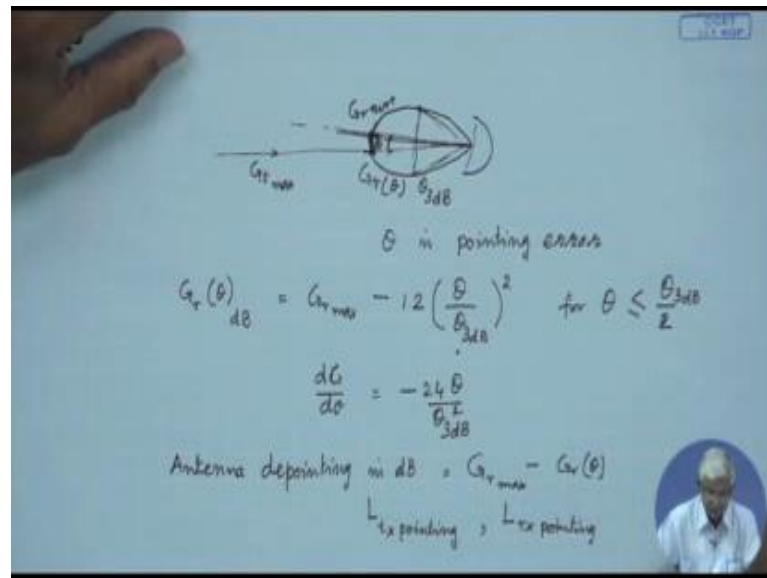 CCET
I.I.T. KGP
Gr max
Gt max
Gr(θ) θ3dB
θ is pointing error
Gr(θ)dB = Gr max - 12 (θ/θ3dB)² for θ ≤ θ3dB/2
dG/dθ = -24θ/θ²3dB
Antenna depointing in dB = Gr max - Gr(θ)
Ltx pointing , Lrx pointing